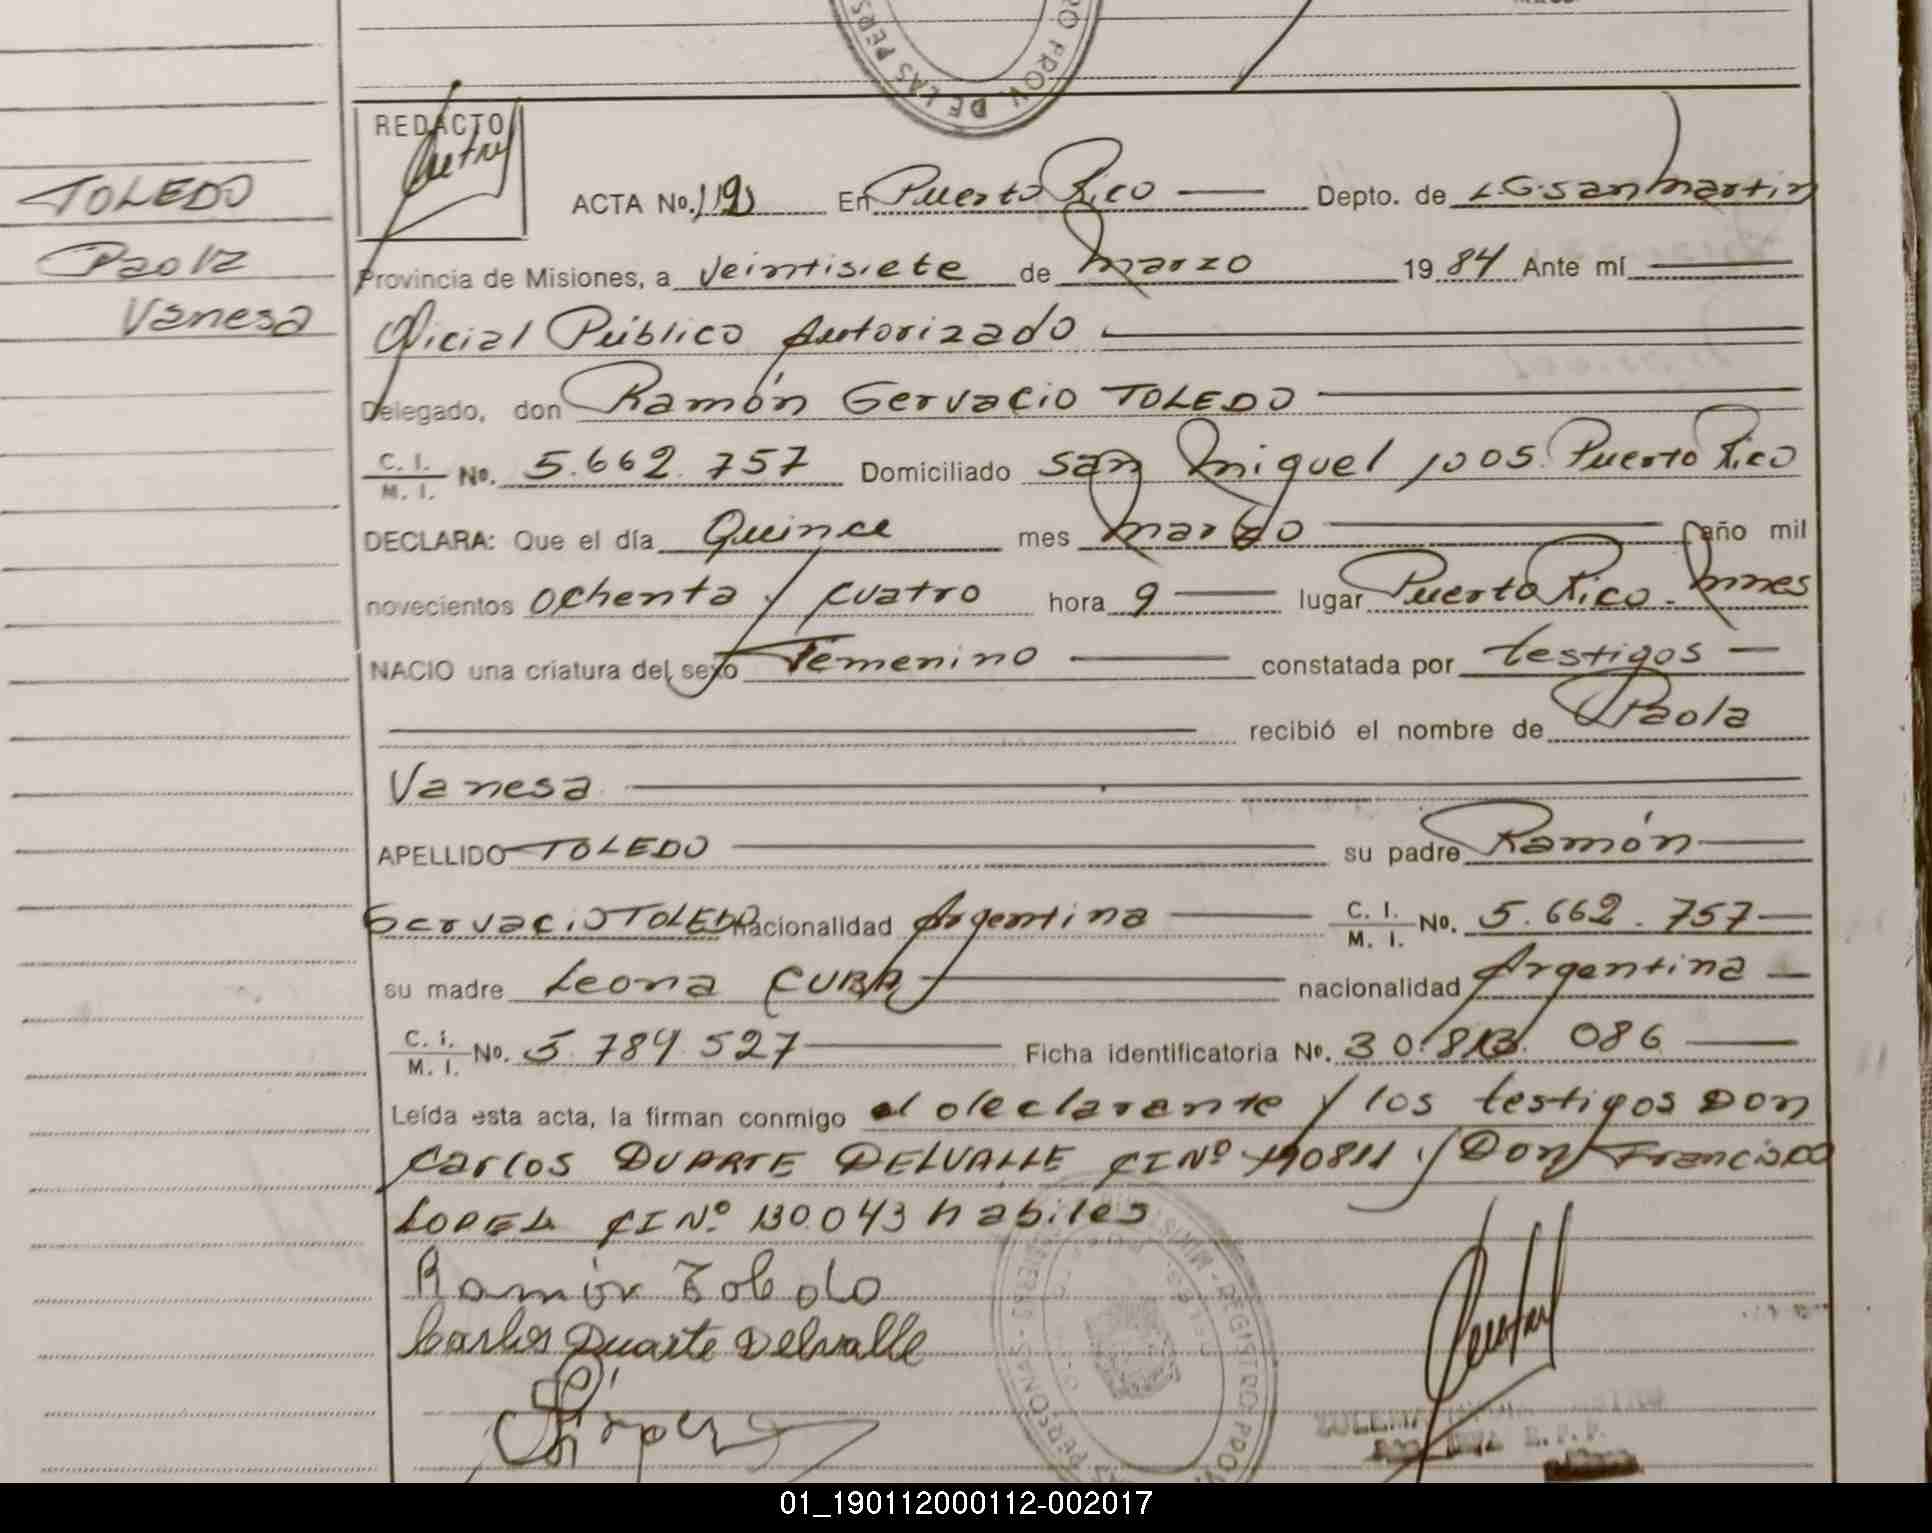 RO PROV. DE LAS PERS
REDACTO
TOLEDO
Paola
Vanesa
ACTA No. 191 En Puerto Rico Depto. de L.G. san martin
Provincia de Misiones, a veintisiete de marzo 1984 Ante mí
Oficial Público Autorizado
Delegado, don Ramón Gervacio TOLEDO
C. I. M. I. No. 5.662.757 Domiciliado san miguel 1005. Puerto Rico
DECLARA: Que el día Quince mes marzo año mil
novecientos ochenta y cuatro hora 9 lugar Puerto Rico. mnes
NACIO una criatura del sexo Femenino constatada por testigos
recibió el nombre de Paola
Vanesa
APELLIDO TOLEDO su padre Ramón
Gervacio TOLEDO nacionalidad Argentina C. I. M. I. No. 5.662.757
su madre Leona CUBA nacionalidad Argentina
C. I. M. I. No. 5.784.527 Ficha identificatoria No. 30.813.086
Leída esta acta, la firman conmigo el declarante y los testigos Don
Carlos DUARTE DELVALLE CI Nº 190811 y Don Francisco
LOPEZ CI Nº 130.043 habiles
Ramón Toledo
Carlos Duarte Delvalle
López
REGISTRO PROV. PERSONAS
ZULEMA
01_190112000112-002017